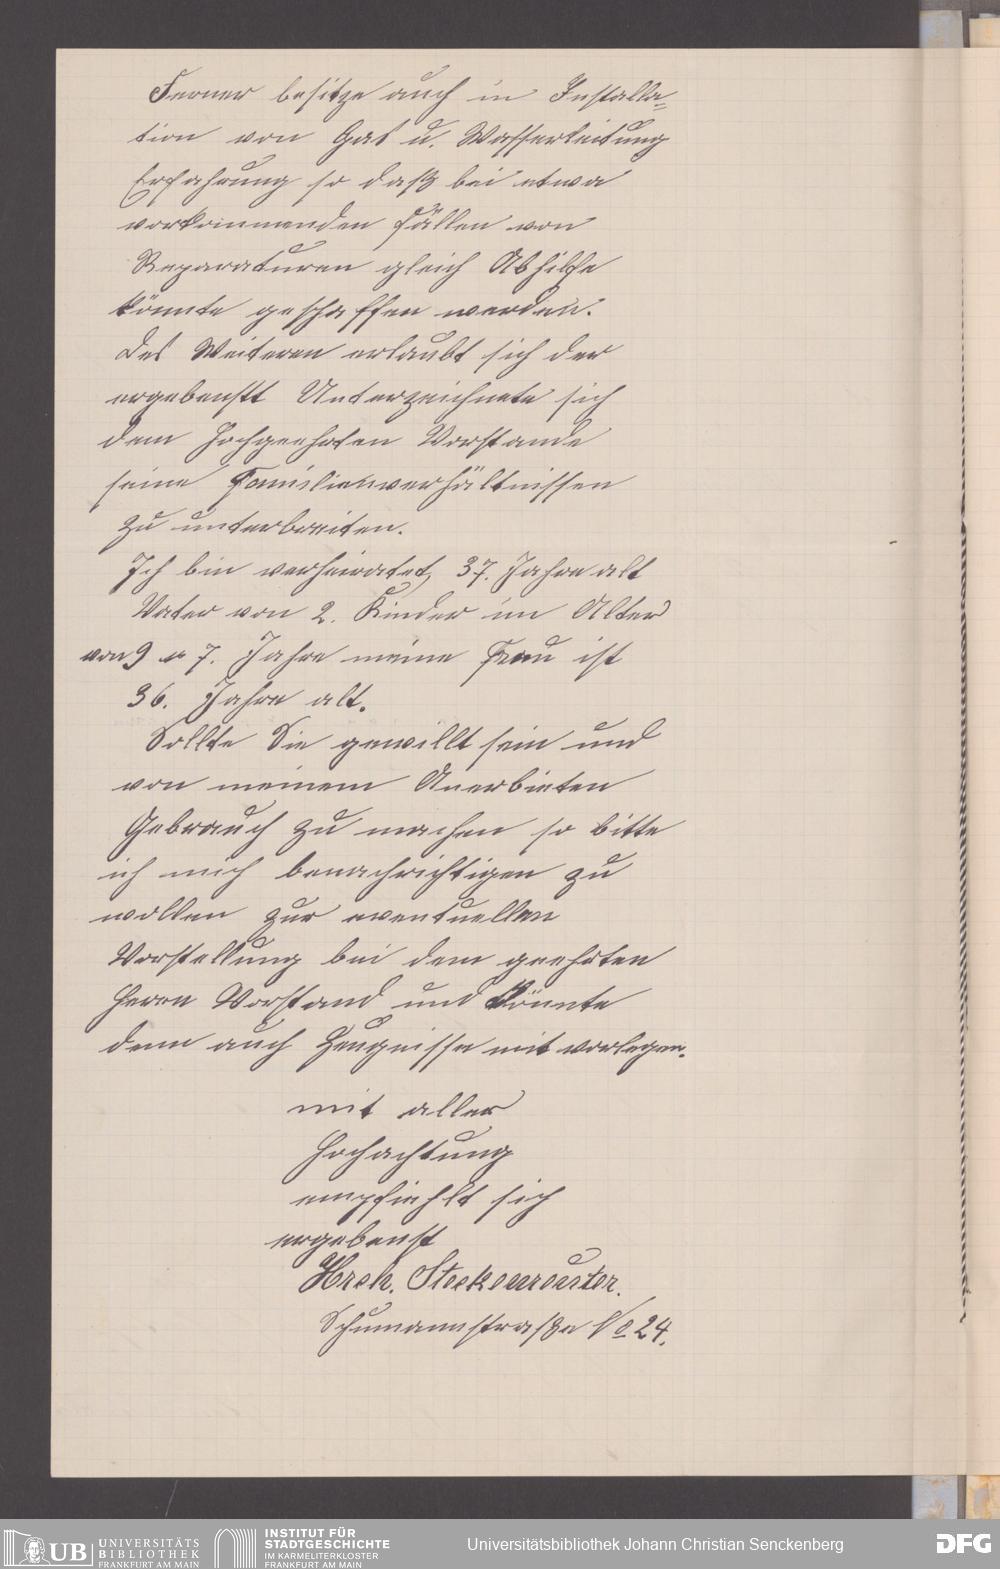 Ferner besitze auch in Installa=
tion von Gas u. Wasserleitung
Erfahrung so daß bei etwa
vorkommenden Fällen von
Reparaturen gleich Abhilfe
könnte geschaffen werden.
Des Weiteren erlaubt sich der
ergebenstt Unterzeichnete sich
dem Hochgeehrten Vorstande
seine Familienverhältnissen
zu unterbreiten.
Ich bin verheiratet, 37. Jahre alt
Vater von 2. Kinder im Alter
von 9 u 7. Jahre meine Frau ist
36. Jahre alt.
Sollte Sie gewillt sein und
von meinem Anerbieten
Gebrauch zu machen so bitte
ich mich benachrichtigen zu
wollen zur eventuellen
Vorstellung bei dem geehrten
Herrn Vorstand und könnte
dann auch Zeugnisse mit vorlegen.
mit aller
Hochachtung
empfiehlt sich
ergebenst
Hrch. Steckenreuter.
Schumannstraße No 24.
UB UNIVERSITÄTS
BIBLIOTHEK
FRANKFURT AM MAIN
INSTITUT FÜR
STADTGESCHICHTE
IM KARMELITERKLOSTER
FRANKFURT AM MAIN
Universitätsbibliothek Johann Christian Senckenberg
DFG